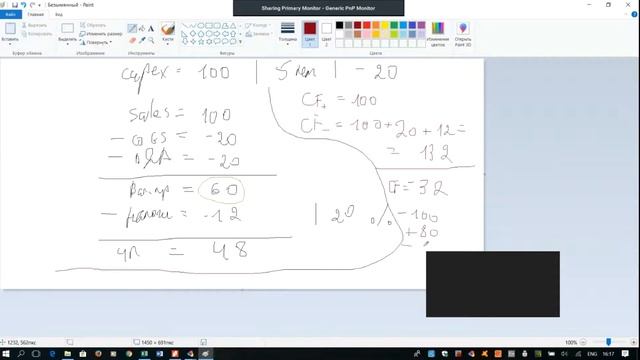 Sharing Primary Monitor - Generic PnP Monitor
Безымянный - Paint
Вырезать
Копировать
Вставить
Буфер обмена
Обрезать
Изменить размер
Повернуть
Выделить
Изображение
Инструменты
Кисти
Контур
Заливка
Фигуры
Толщина
Цвет 1
Цвет 2
Цвета
Изменение цветов
Открыть Paint 3D
capex = 100 | 5 лет | - 20
Sales = 100
- COGS = -20
- D&A = -20
Вал.пр = 60
- налоги = -12 | 20 %
ЧП = 48
CF+ = 100
CF- = 100 + 20 + 12 =
= 132
CF = -32
- 100
+ 80
-
1232, 562пкс
1450 × 691пкс
100%
ENG
16:17